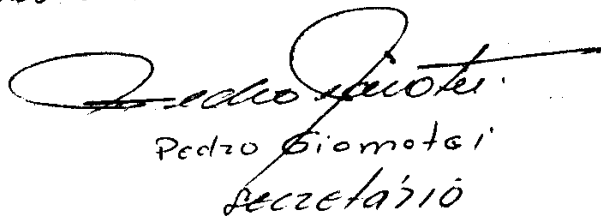 Pedro Giomotei
secretário